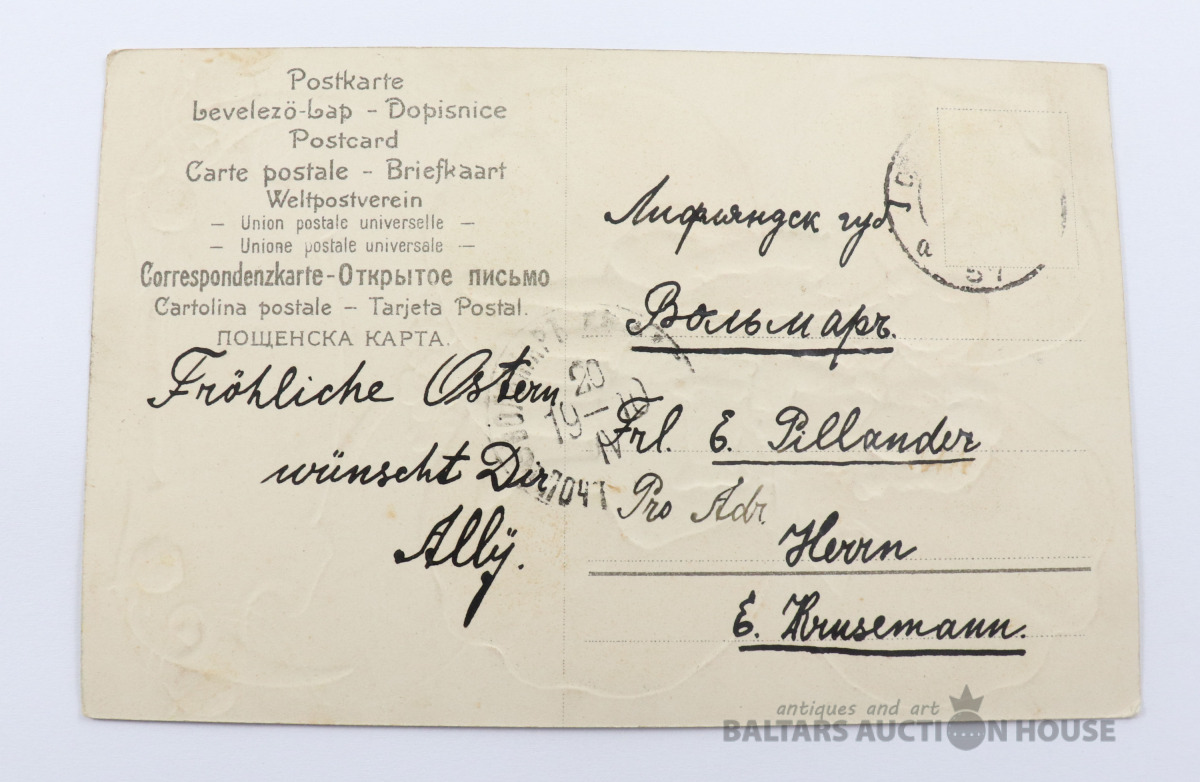 Postkarte
Levelezö-Lap - Dopisnice
Postcard
Carte postale - Briefkaart
Weltpostverein
— Union postale universelle —
— Unione postale universale —
Correspondenzkarte-Открытое письмо
Cartolina postale – Tarjeta Postal.
ПОЩЕНСКА КАРТА.
Fröhliche Ostern
wünscht Dir
Allÿ.
Лифляндск губ.
Вольмаръ.
Frl. E. Pillander
Pro Adr.
Herrn
E. Krusemann.
20
19
IV
antiques and art
BALTARS AUCTION HOUSE